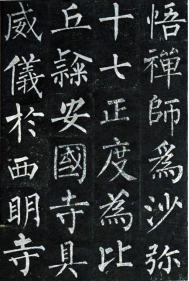 悟禪師為沙弥
十七正度為比
丘𮥼安國寺具
威儀於西明寺